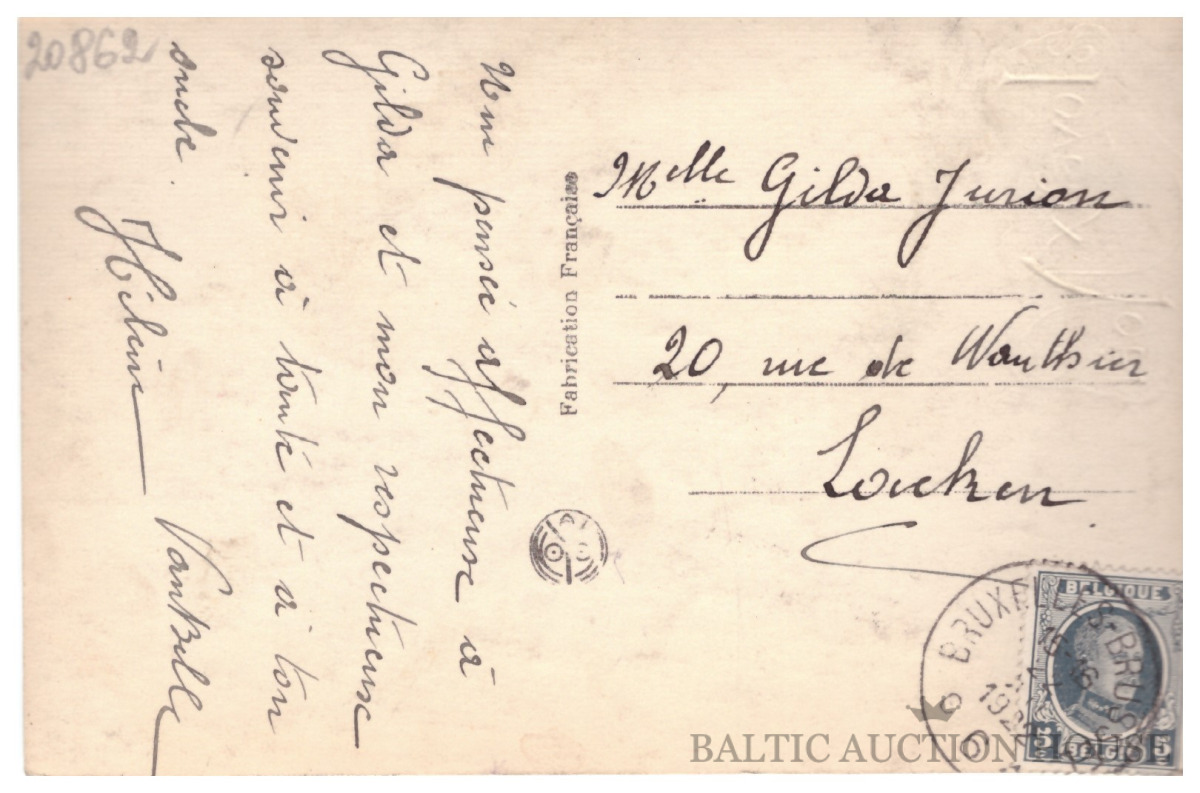 20862
Une pensée affectueuse à
Gilda et mon respectueuse
souvenir à tante et à ton
oncle.
VanBelle
Fabrication Française
Melle Gilda Jurion
20, rue de Wauthier
Laeken
BRUXELLES-BRUSSEL
6 6
BELGIQUE
BELGIË
5 5
BALTIC AUCTION HOUSE